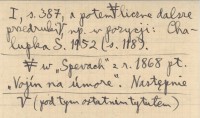 I, s. 387, a poten V liczne dalsze
przedruki V, np. w pozycji: Cha-
lupka S. 1952 (s. 118).
V w „Spevach" z r. 1868 pt.
„Vojín na úmore". Następnie
V (pod tym ostatnim tytułem)